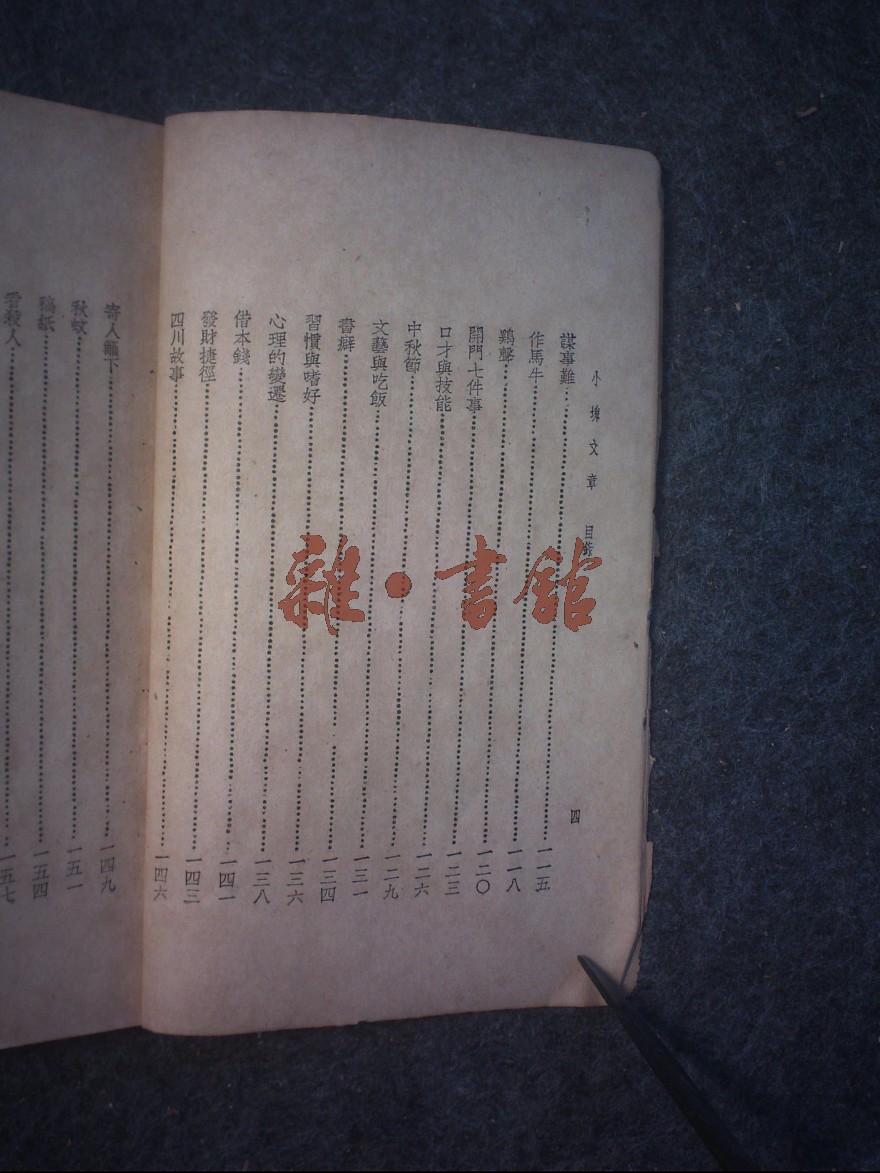 小塊文章 目錄 四
謀事難……一一五
作馬牛……一一八
鷄聲……一二〇
開門七件事……一二三
口才與技能……一二六
中秋節……一二九
文藝與吃飯……一三一
書癖……一三四
習慣與嗜好……一三六
心理的變遷……一三八
借本錢……一四一
發財捷徑……一四三
四川故事……一四六
寄人籬下……一四九
秋蚊……一五一
稿紙……一五四
看殺人……一五七
雜·書館